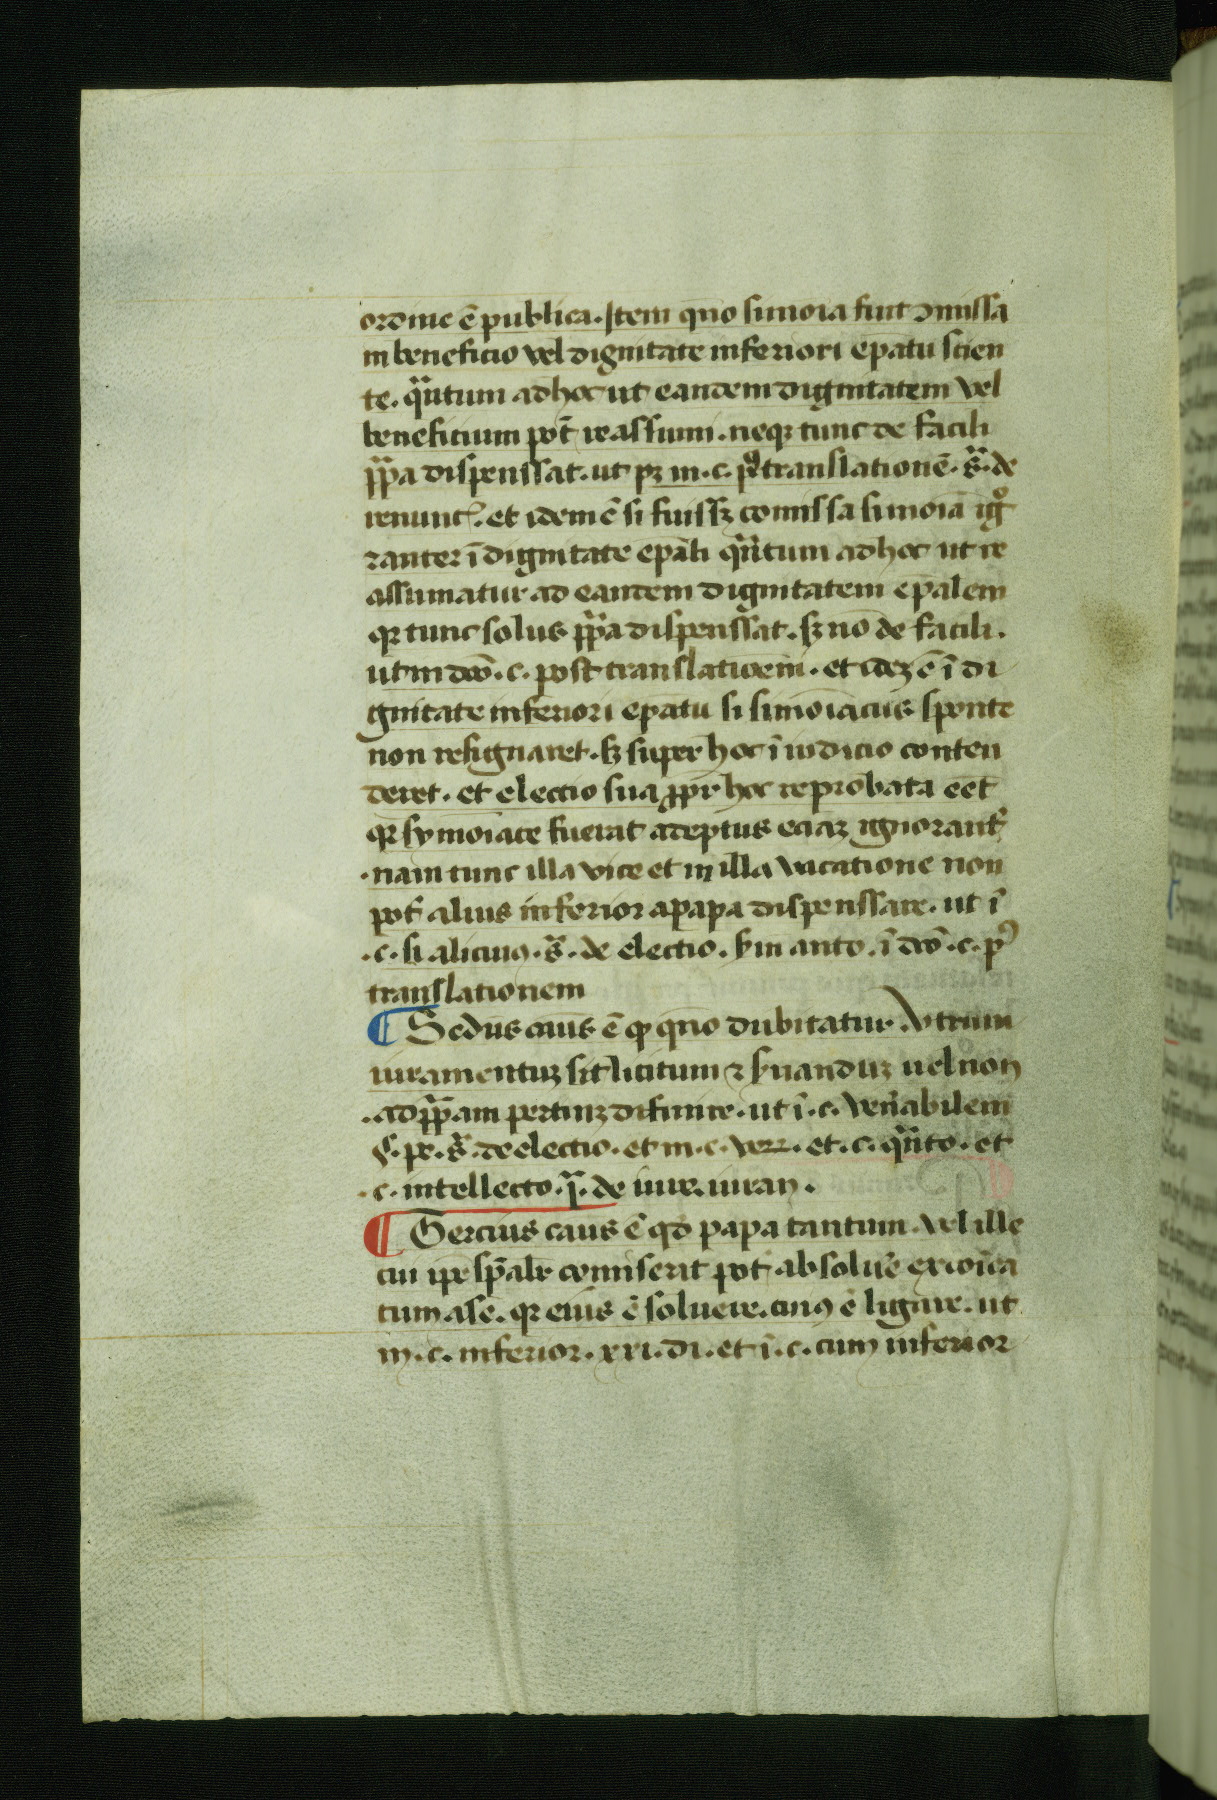 ordine ē publica. Item qn̄o simoīa fuit ꝯmissa
in beneficio vel dignitate inferiori epatu scien
te. qͣntum ad hoc ut eandem dignitatem vel
beneficium pot̄ reassumi. neqꝫ tunc de facili
pp̄a dispenssat. ut pꝫ in .c. pͦ translationē. ē. de
renunc̄. et idem ē si fuissꝫ comissa simoīa ign̄o
ranter ī dignitate ep̄ali qͣntum ad hoc ut re
assumatur ad eandem dignitatem ep̄alem
qꝛ tunc solus pp̄a dispenssat. sꝫ nō de facili.
ut in dc̄o .c. post translationem. et ideꝫ ē ī di
gnitate inferiori epatu si simoīacus sponte
non resignaret. sꝫ super hoc ī iudicio conten
deret. et electio sua ꝓpr̄ hoc reprobata eēt
qꝛ symoīace fuerat adeptus eciaꝫ ignorant̄
. nam tunc illa vice et in illa vacatione non
pot̄ alius inferior a papa dispenssare. ut ī
.c. si alicuiꝯ .ē. de electio. sm̄ anto. ī dc̄o .c. pꝰ
translationem
¶ Secdus casus ē ꝙ qn̄o dubitatur. Vtrum
iuramentuꝫ sit licitum ⁊ s̄uanduꝫ uel non
. ad pp̄am pertinꝫ difinire. ut ī .c. Ven̄abilem
§. pe. ē. de electio. et in .c. verꝝ. et .c. qͣnto. et
.c. intellecto .ē. de iure iuran.
¶ Tercius casus ē qd̄ papa tantum vel ille
cui ip̄e sp̄alr̄ comiserit pot̄ absolue᷑ excōica
tum a se. qꝛ eius ē soluere. cuiꝯ ē ligare. ut
in .c. inferior. xxi. di. et ī .c. cum inferior